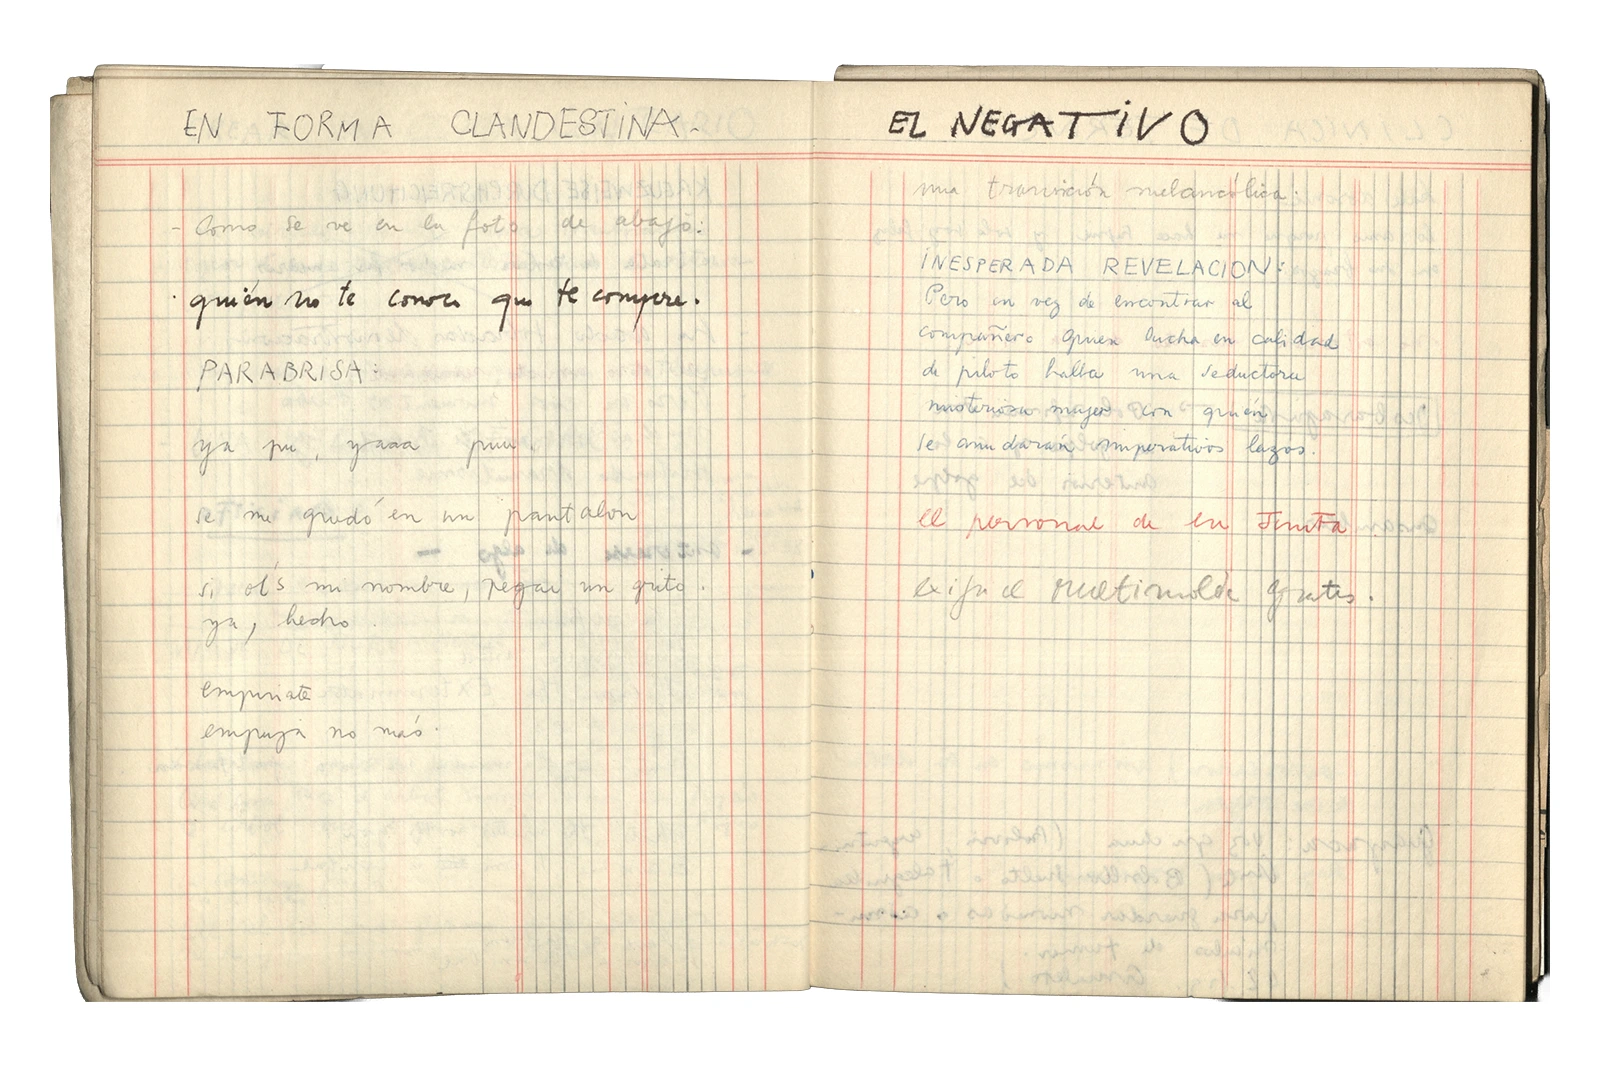 EN FORMA CLANDESTINA.
- Como se ve en la foto de abajo:
· quién no te conoce que te compre.
PARABRISA:
ya pu, yaaa puu.
se me quedó en un pantalón
si oís mi nombre, pegai un grito.
ya, hecho.
empuja no más.
EL NEGATIVO
una transición melancólica.
INESPERADA REVELACION:
Pero en vez de encontrar al
compañero quien lucha en calidad
de piloto halla una seductora
misteriosa mujer con quién
se anudarán imperativos lazos.
el personal de la Junta
exija el multimolde gratis.